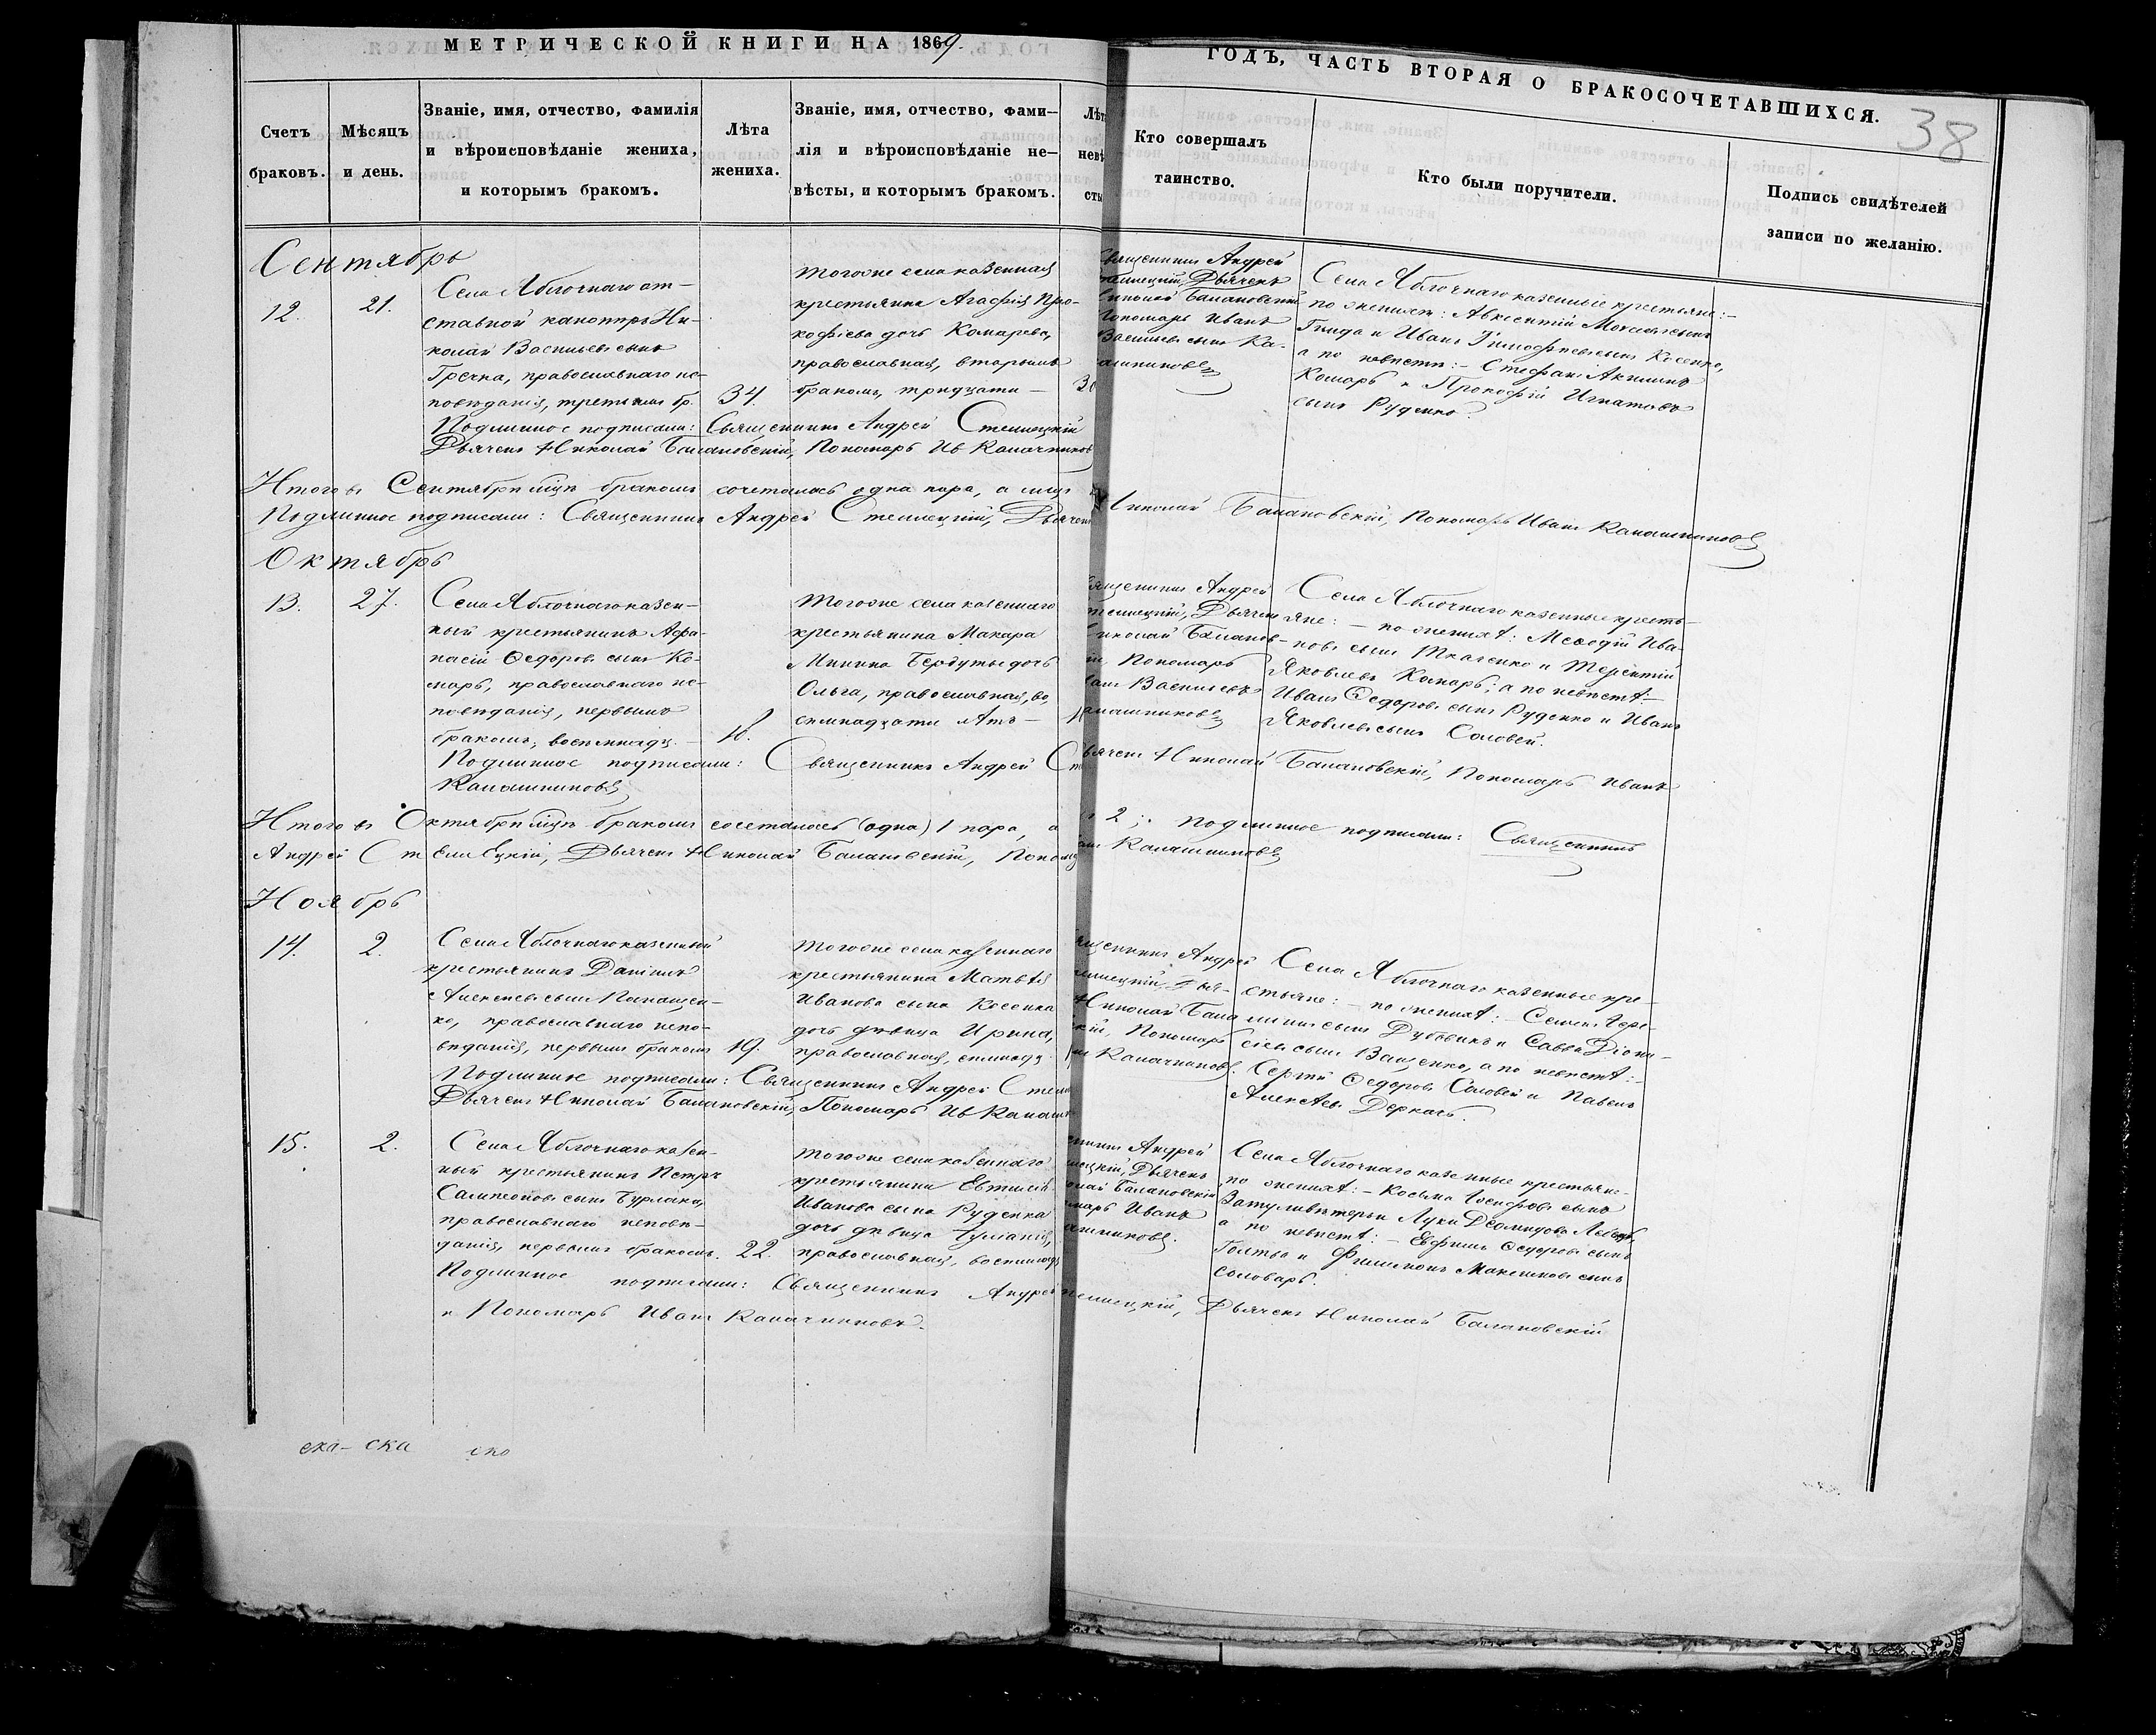 МЕТРИЧЕСКОЙ КНИГИ НА 1869.
ГОДЪ, ЧАСТЬ ВТОРАЯ О БРАКОСОЧЕТАВШИХСЯ.
38
Счетъ
браковъ.
Мѣсяцъ
и день.
Званіе, имя, отчество, фамилія
и вѣроисповѣданіе жениха,
и которымъ бракомъ.
Лѣта
жениха.
Званіе, имя, отчество, фами—
лія и вѣроисповѣданіе не—
вѣсты, и которымъ бракомъ.
Лѣт
невѣ
сты
Кто совершалъ
таинство.
Кто были поручители.
Подпись свидѣтелей
записи по желанію.
Сентябрь
12.
21.
Села Яблочнаго от-
ставной канониръ Ни-
колай Васильевъ сынъ
Гречка, православнаго ис-
повѣданія, третьимъ бр.
34.
Тогоже села казенная
крестьянка Агафія Про-
кофіева дочь Комарева,
православная, вторымъ
бракомъ, тридцати —
30
Священникъ Андрей
Дьячекъ
Николай Балановскій
Пономарь Иванъ
Васильевъ сынъ Ка-
Села Яблочнаго казенные крестьяне:-
по женихѣ: Авксентій Моисеевъ сынъ
Гнида и Иванъ Тимофѣевъ сынъ Косенко,
а по невѣстѣ:- Стефанъ Акимовъ
Комарь и Прокофій Игнатовъ
сынъ Руденко.
Подлинное подписали: Священникъ Андрей Стеллецкій
Дьячекъ Николай Балановскій, Пономарь Ив Калашниковъ
Итого въ Сентябрѣ мцѣ бракомъ сочеталась одна пара, а лицъ
Подлинное подписали: Священникъ Андрей Стеллецкій, Дьячекъ Николай Балановскій, Пономарь Иванъ Калашниковъ
Октябрь
13.
27.
Села Яблочнаго казен-
ный крестьянинъ Афа-
насій Ѳедоровъ сынъ Ко-
марь, православнаго ис-
повѣданія, первымъ
бракомъ, восемнадц.
18.
Тогоже села казеннаго
крестьянина Макара
Минина дочь
Ольга, православная, во,
семнадцати лѣтъ —
Священникъ Андрей
Стеллецкій, Дьячекъ
Николай Баланов-
скій, Пономарь
Иванъ Васильевъ
Калашниковъ
Села Яблочнаго казенные кресть-
яне: — по женихѣ: Меѳодій Ива-
новъ сынъ Ткаченко и Терентій
Яковлевъ Комарь; а по невѣстѣ:-
Иванъ Ѳедоровъ сынъ Руденко и Иванъ
Яковлевъ сынъ Соловей.
Подлинное подписали: Священникъ Андрей Ст
Дьячекъ Николай Балановскій, Пономарь Иванъ
Калашниковъ
Итого въ Октябрѣ мцѣ бракомъ сочеталась (одна) 1 пара, а
2; Подлинное подписали: Священникъ
Андрей Стеллецкій, Дьячекъ Николай Балановскій, Поном
Калашниковъ
Ноябрь
14.
2.
Села Яблочнаго казенный
крестьянинъ Даніилъ
Алексѣевъ сынъ Панащен-
ко, православнаго испо-
вѣданія, первымъ бракомъ
19.
Тогоже села казеннаго
крестьянина Матвѣя
Иванова сына Косенка
дочь дѣвица Ирина,
православная, семнадц.
Священникъ Андрей
Николай Бала
скій, Пономарь
Калачниковъ.
Села Яблочнаго казенные кре-
стьяне: — по женихѣ: — Семенъ
сынъ Дубовикъ и Савва Діони-
сіевъ сынъ Ващенко, а по невѣстѣ:-
Сергій Ѳедоровъ Соловей и Павелъ
Алексѣевъ Деркачъ.
Подлинное подписали: Священникъ Андрей Стелл
Дьячекъ Николай Балановскій, Пономарь Ив Калаш
15.
2.
Села Яблочнаго казен-
ный крестьянинъ Петръ
Сампсоновъ сынъ Бурлака,
православнаго исповѣ-
данія, первымъ бракомъ.
22.
Тогоже села казеннаго
крестьянина
Иванова сына Руденка
дочь дѣвица Іуліанія,
православная, восемнадц
Андрей
Дьячекъ
Балановскій
Иванъ
Села Яблочнаго казенные крестьяне-
по женихѣ: — Косьма Іосифовъ сынъ
Луки
а по невѣстѣ: — Евфимъ Ѳедоровъ сынъ
и Филимонъ Максимовъ сынъ
Подлинное подписали: Священникъ Андрей Стеллецкій, Дьячекъ Николай Балановскій
и Пономарь Иванъ Калачниковъ.
ска- ска ско